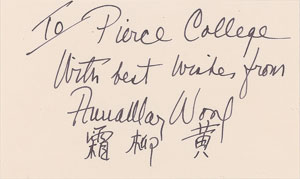 To Pierce College
With best wishes from
Anna May Wong
霜 柳 黃